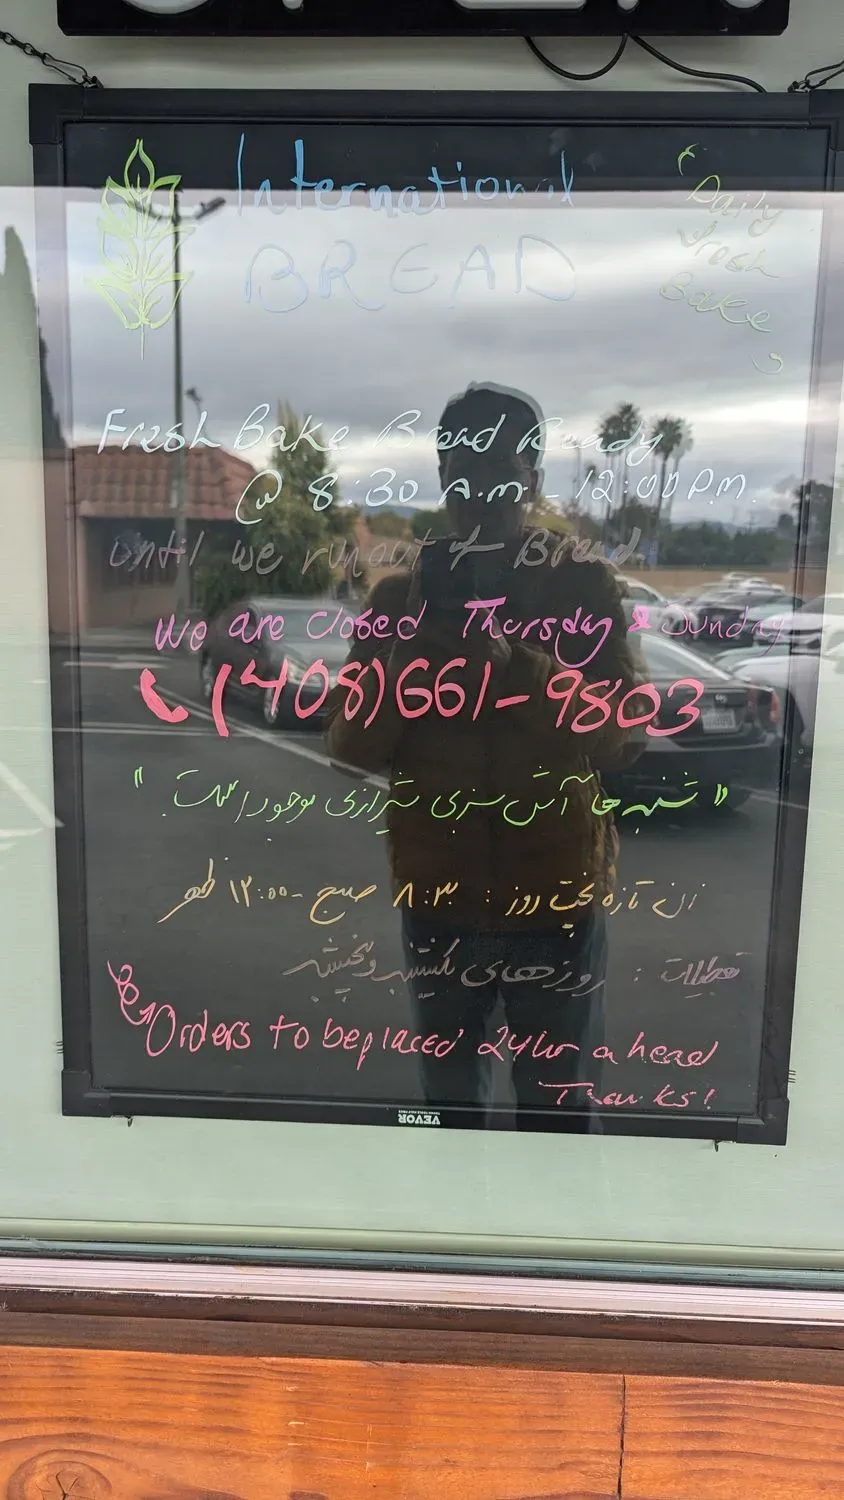 International
BREAD
"Daily
Fresh
Bake"
Fresh Bake Bread Ready
@ 8:30 A.m - 12:00 P.M.
Until we run out of Bread
We are closed Thursday & Sunday
(408)661-9803
"شنبه ها آش سبزی شیرازی موجود است."
نان تازه پخت روز : ۸:۳۰ صبح - ۱۲:۰۰ ظهر
تعطیلات : روزهای یکشنبه و پنجشنبه
Orders to be placed 24hr ahead
Thanks!
VEVOR